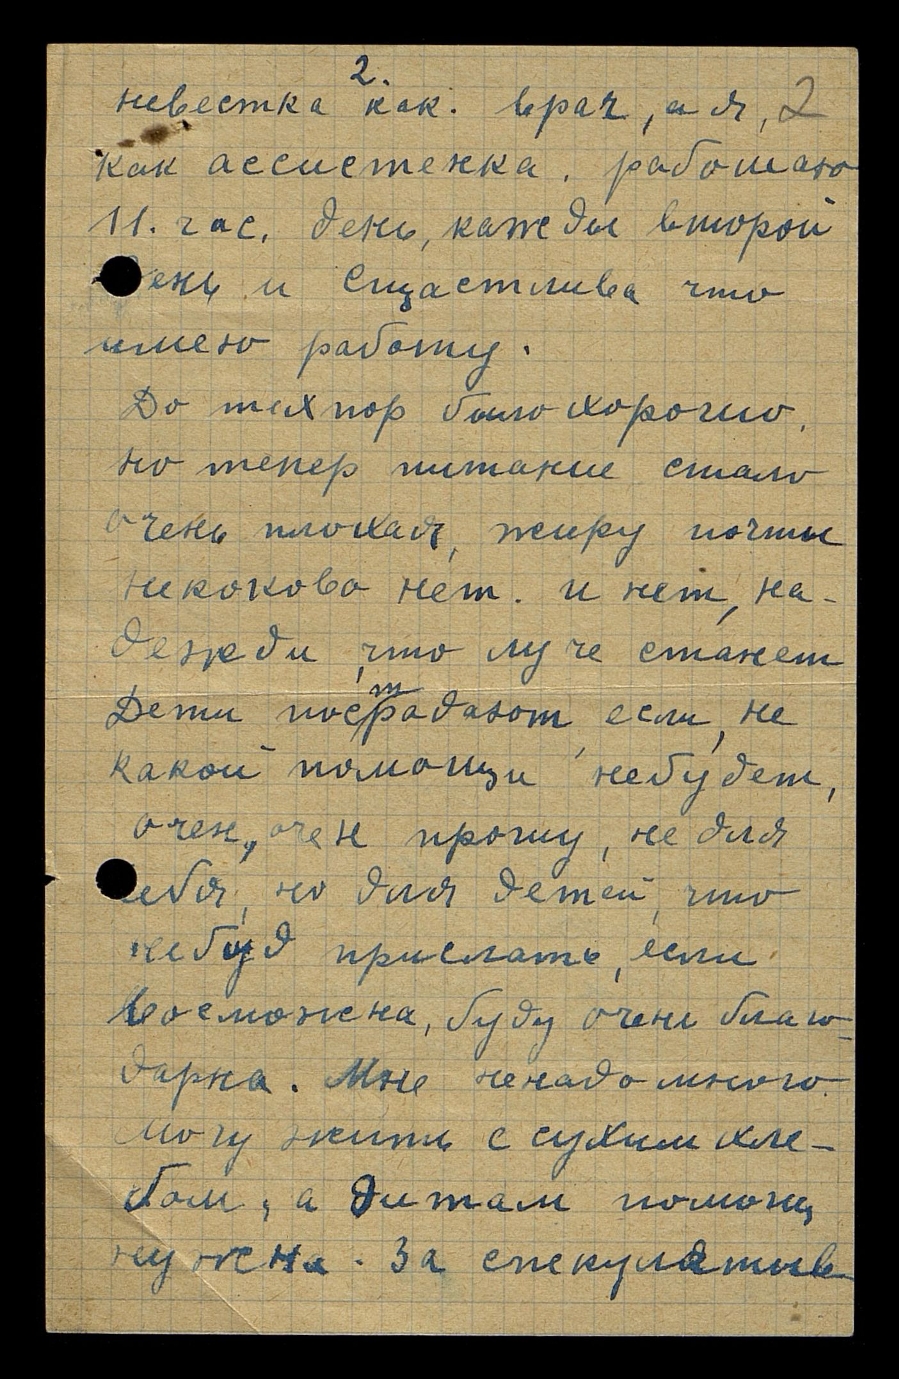 2.
невестка как. врач, а я, 2
как ассистенка. работаю
11. час. день, кажды второй
день и сщастлива что
имею работу.
До тех пор было хорошо,
но тепер питание стало
очень плохая, жиру почти
некоково нет. и нет, на-
дежди, что луче станет
Дети пострадают если, не
какой помощи небудет,
очен, очен прошу, не для
себя, но для детей, что
небуд прислать, если
восможна, буду очень благо-
дарна. Мне ненадо много
могу жить с сухим хле-
бом, а дитам помощ
нужна. За спекулятив